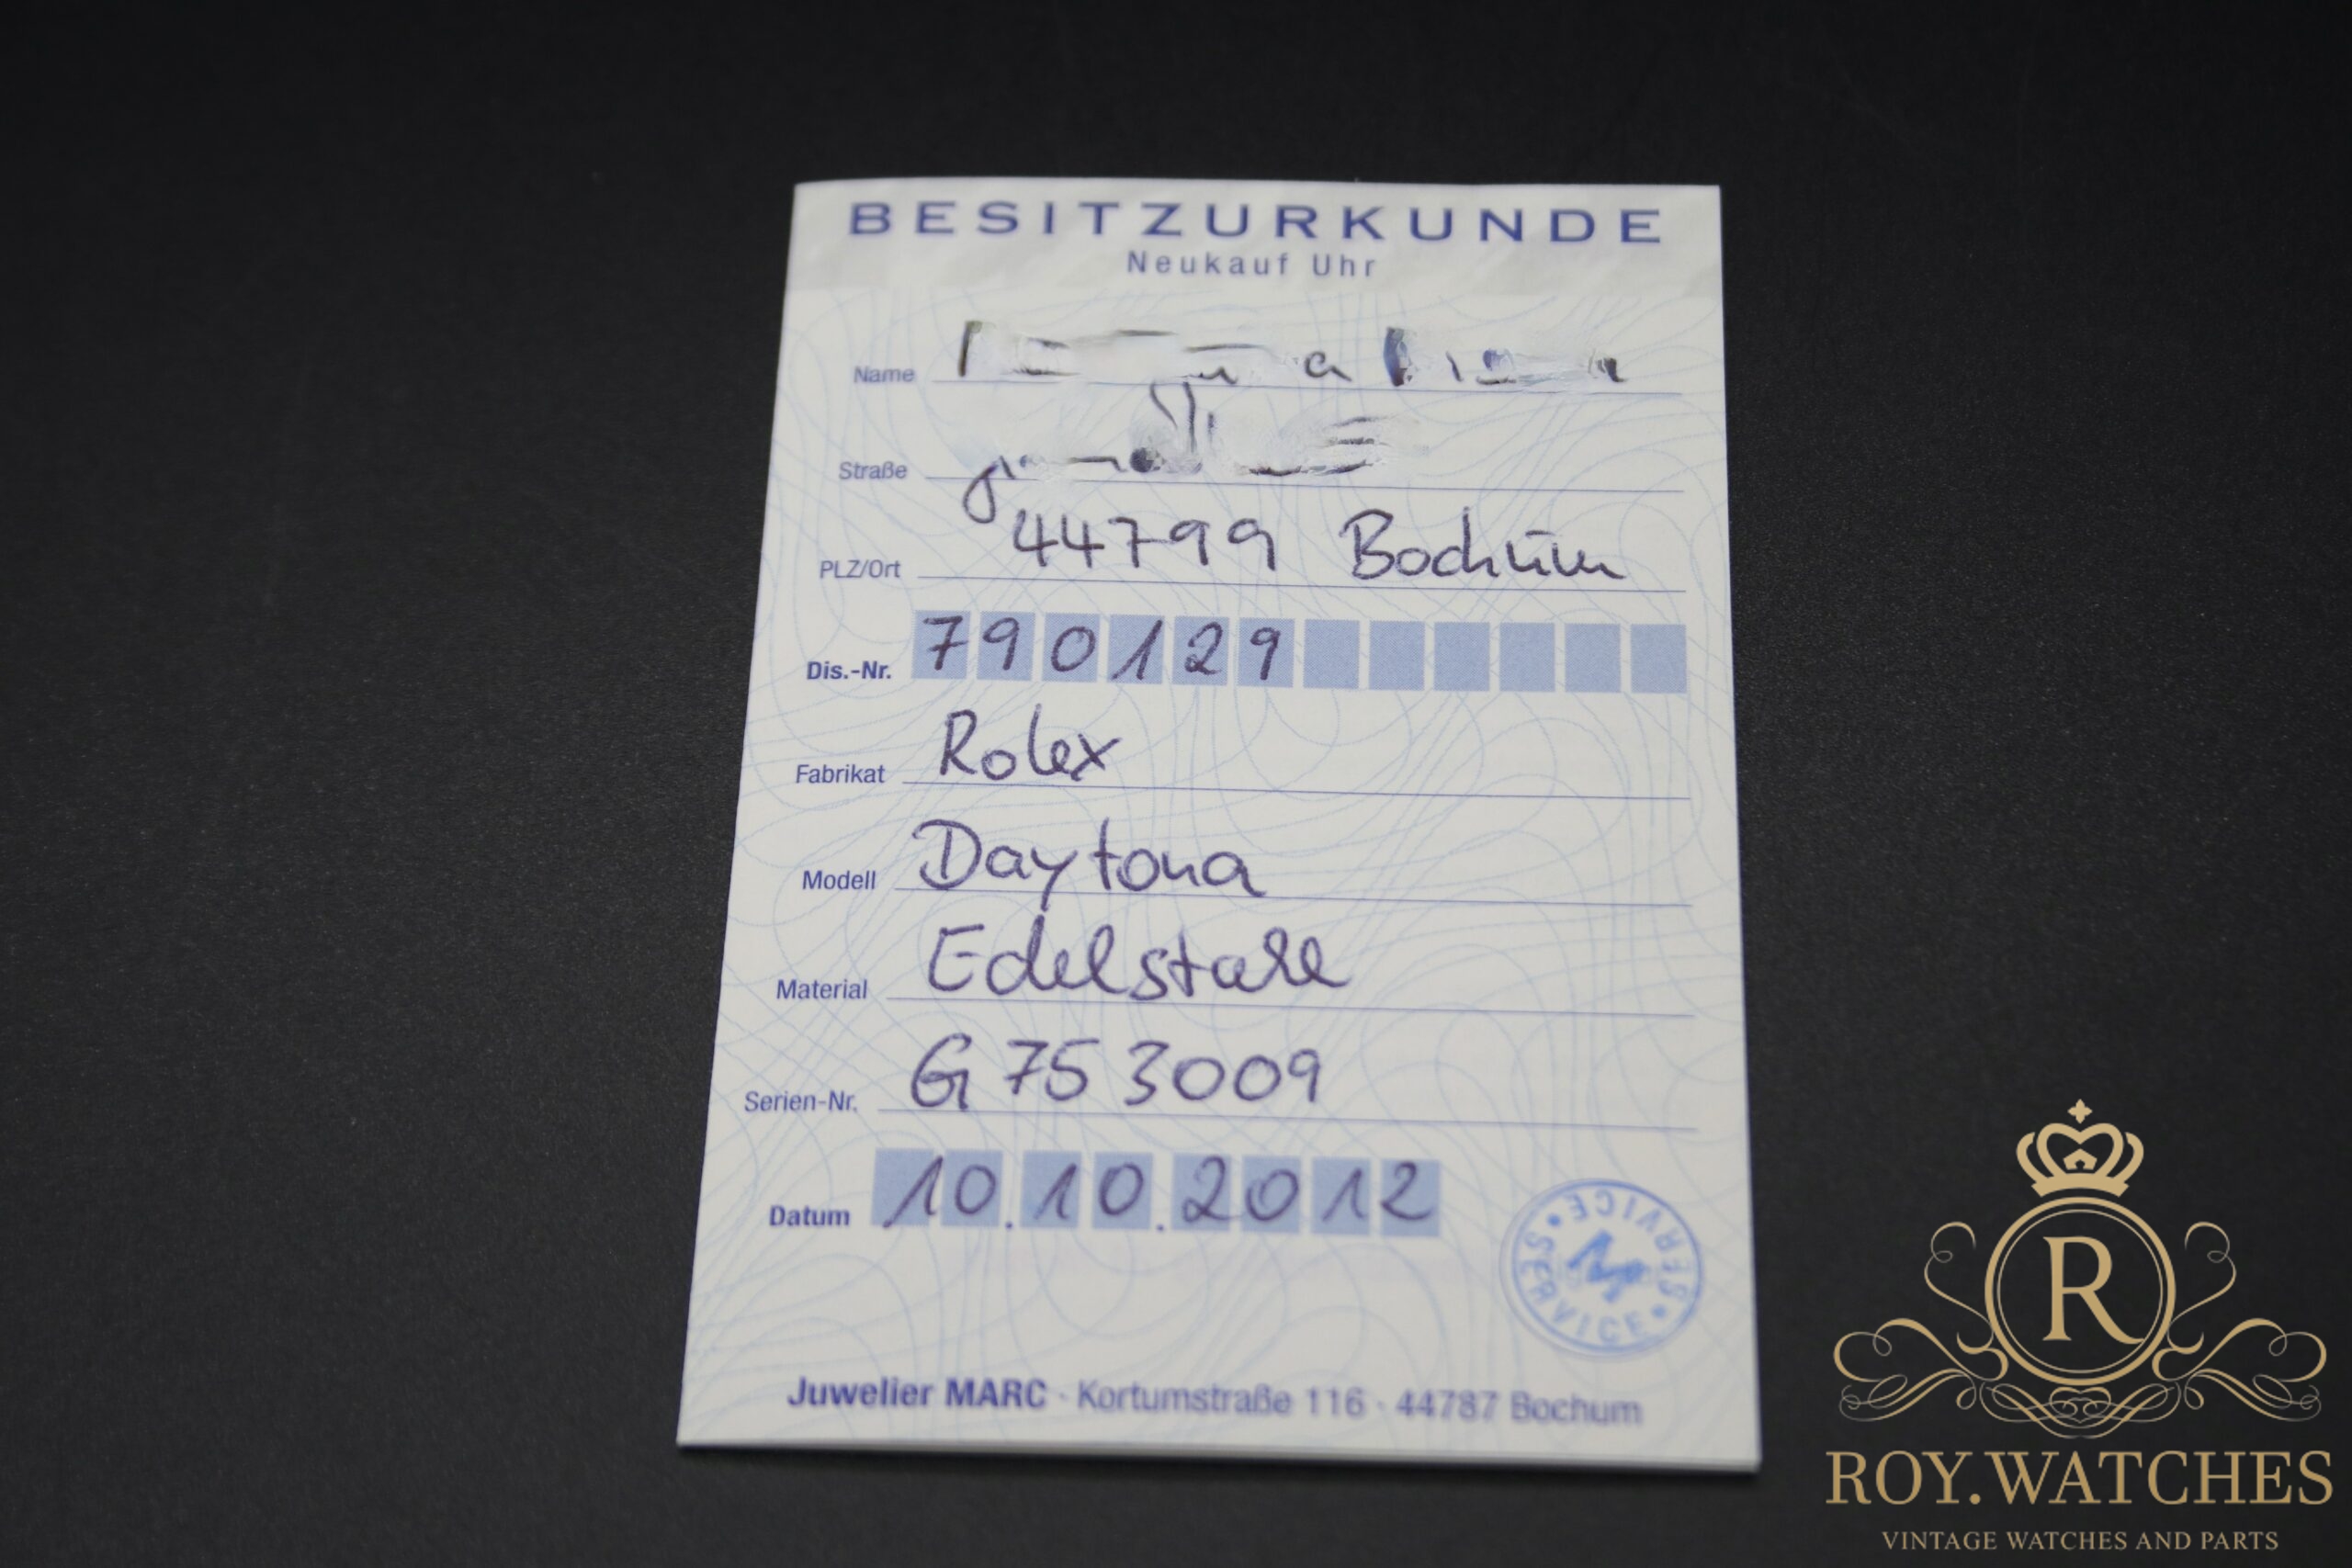 BESITZURKUNDE
Neukauf Uhr
Name
Straße
PLZ/Ort 44799 Bochum
Dis.-Nr. 790129
Fabrikat Rolex
Modell Daytona
Material Edelstahl
Serien-Nr. G753009
Datum 10.10.2012
SERVICE • SERVICE • SERVICE •
M
Juwelier MARC · Kortumstraße 116 · 44787 Bochum
R
ROY.WATCHES
VINTAGE WATCHES AND PARTS